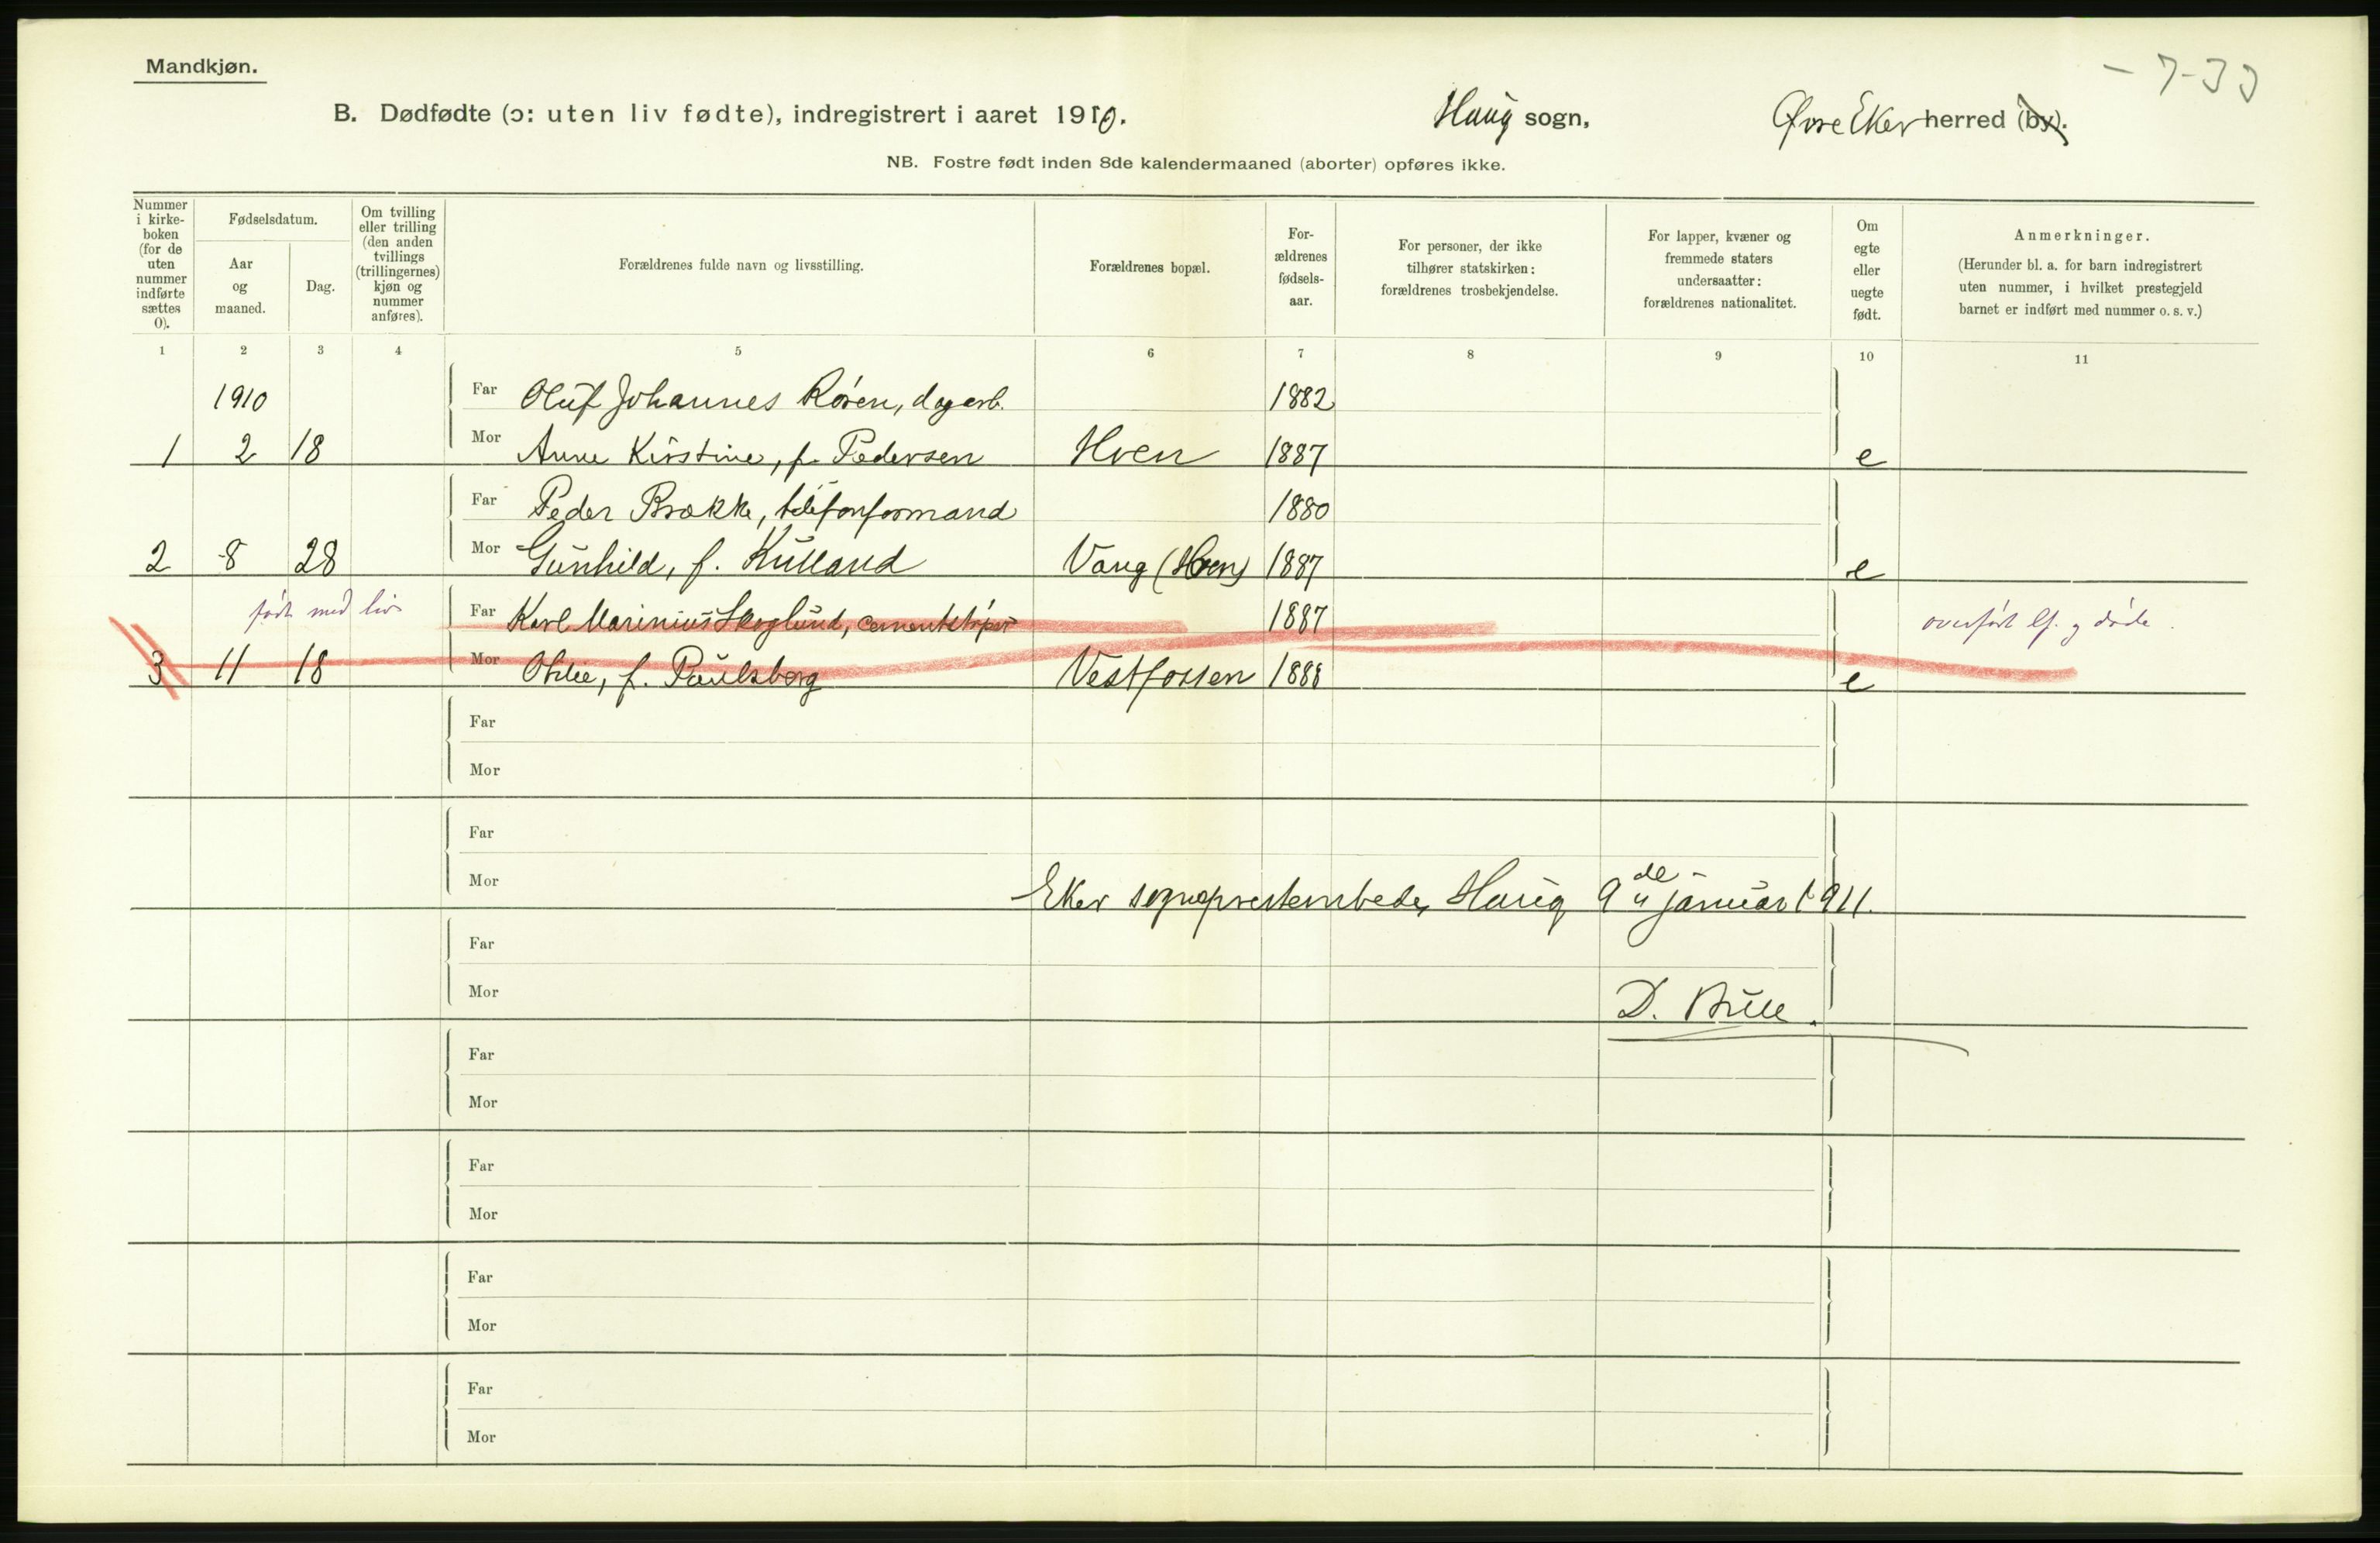 Mandkjøn.
- 7-33
B. Dødfødte (ɔ: uten liv fødte), indregistrert i aaret 1910. Haug sogn, Øvre Eker herred (by).
NB. Fostre født inden 8de kalendermaaned (aborter) opføres ikke.
Nummer i kirkeboken (for de uten nummer indførte sættes 0).
Fødselsdatum.
Aar og maaned.
Dag.
Om tvilling eller trilling (den anden tvillings (trillingernes) kjøn og nummer anføres).
Forældrenes fulde navn og livsstilling.
Forældrenes bopæl.
For-ældrenes fødsels-aar.
For personer, der ikke tilhører statskirken: forældrenes trosbekjendelse.
For lapper, kvæner og fremmede staters undersaatter: forældrenes nationalitet.
Om egte eller uegte født.
Anmerkninger.
(Herunder bl. a. for barn indregistrert uten nummer, i hvilket prestegjeld barnet er indført med nummer o. s. v.)
1 2 3 4 5 6 7 8 9 10 11
1910 Far Oluf Johannes Røren, dagarb. 1882
1 2 18 Mor Anne Kirstine, f. Pedersen Hven 1887 e
Far Peder Brække, telefonformand 1880
2 8 28 Mor Gunhild, f. Kulland Vang (Hven) 1887 e
født med liv Far Karl Marinius Skoglund, cementstøper 1887 overført lf. g døde.
3 11 18 Mor Otilie, f. Paulsberg Vestfossen 1888 e
Far
Mor
Far
Mor
Eker sogneprestembede, Haug 9de januar 1911.
Far
Mor
D. Bull.
Far
Mor
Far
Mor
Far
Mor
Far
Mor